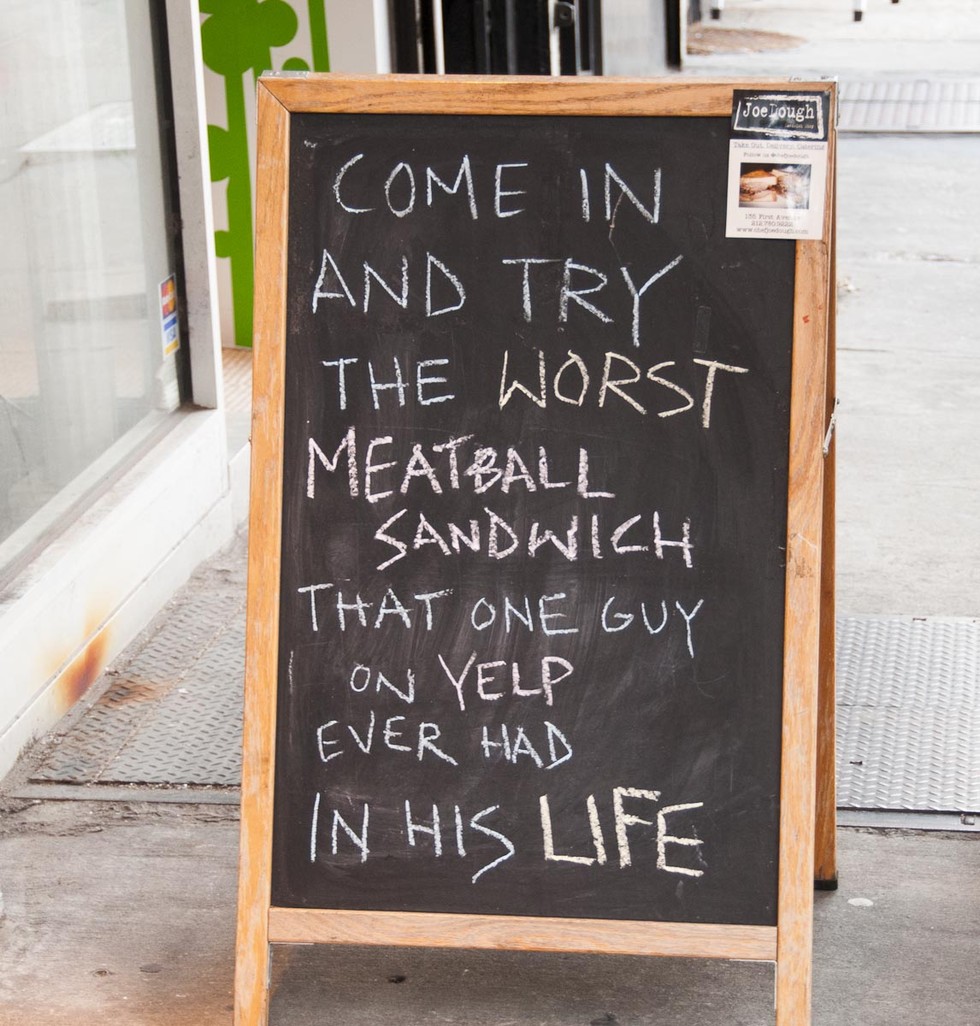 COME IN
AND TRY
THE WORST
MEATBALL
SANDWICH
THAT ONE GUY
ON YELP
EVER HAD
IN HIS LIFE
JoeDough
Take Out, Delivery, Catering
Follow us @chefjoedough
135 First Avenue
www.chefjoedough.com